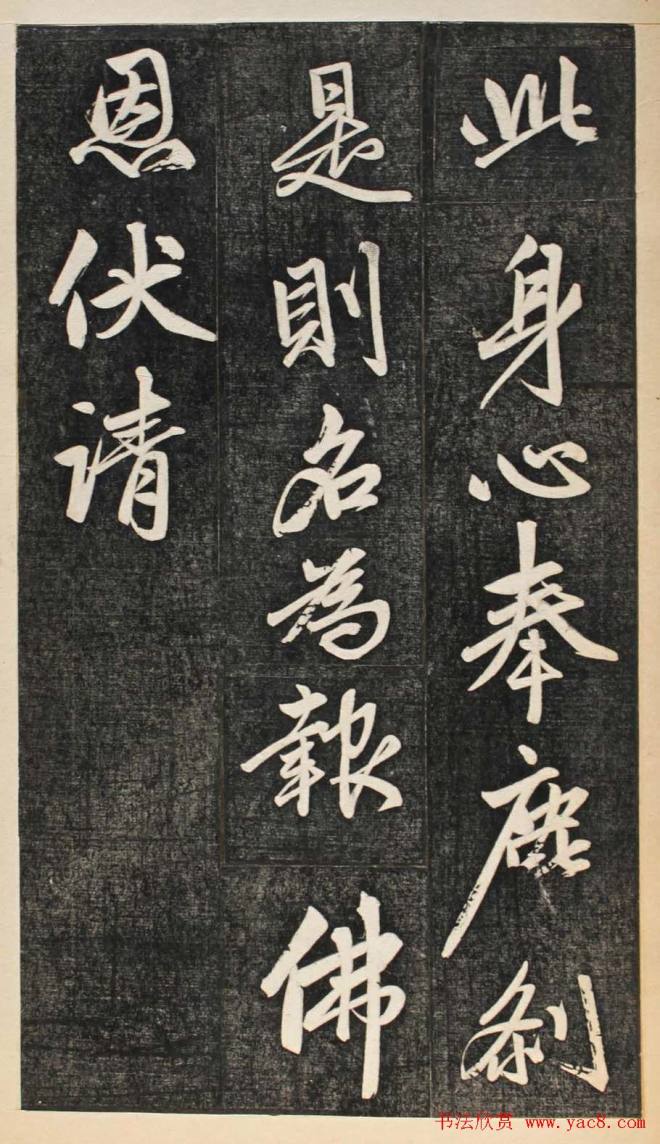 此身心奉塵刹
是則名為報佛
恩伏请
书法欣赏 www.yac8.com